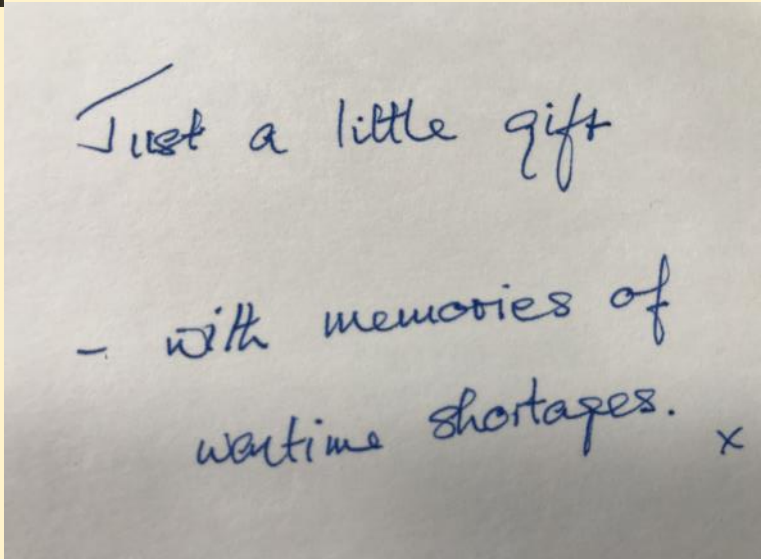 Just a little gift
- with memories of
wartime shortages. x